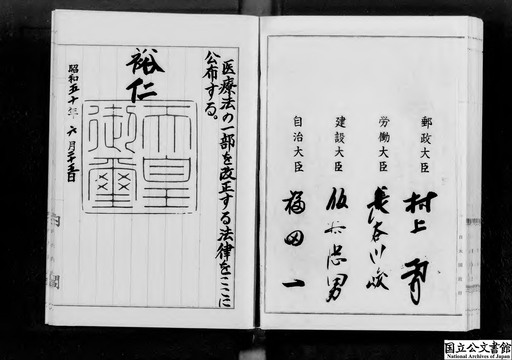 郵政大臣 村上勇
労働大臣 長谷川峻
建設大臣 仮谷忠男
自治大臣 福田一
医療法の一部を改正する法律をここに
公布する。
裕仁
天皇
御璽
昭和五十年六月二十五日
国立公文書館
National Archives of Japan